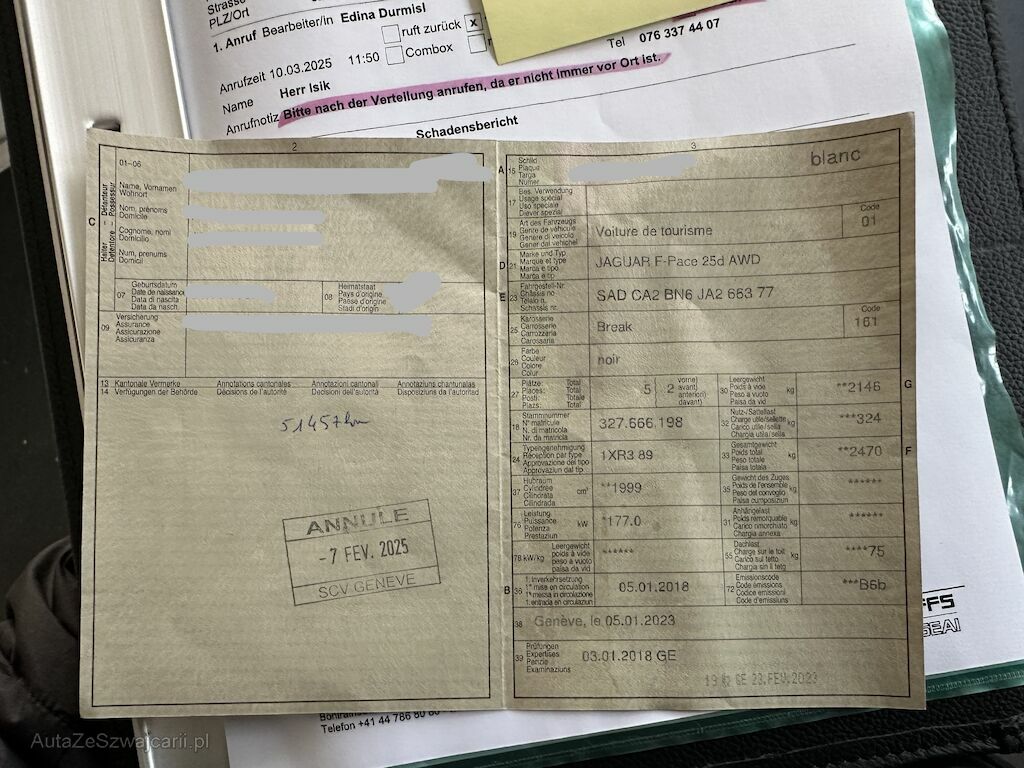 Strasse
PLZ/Ort
1. Anruf Bearbeiter/in Edina Durmisl
ruft zurück x
Anrufzeit 10.03.2025 11:50 Combox
Tel 076 337 44 07
Name Herr Isik
Anrufnotiz Bitte nach der Verteilung anrufen, da er nicht immer vor Ort ist.
Schadensbericht
2
01–06
C
Halter Détenteur
Detentore Possessur
Name, Vornamen
Wohnort
Nom, prénoms
Domicile
Cognome, nomi
Domicilio
Num, prenums
Domicil
07
Geburtsdatum
Date de naissance
Data di nascita
Data da nasch.
08
Heimatstaat
Pays d'origine
Paese d'origine
Stadi d'origin
09
Versicherung
Assurance
Assicurazione
Assicuranza
13 Kantonale Vermerke Annotations cantonales Annotazioni cantonali Annotaziuns chantunalas
14 Verfügungen der Behörde Décisions de l'autorité Decisioni dell'autorità Disposiziuns da l'autoritad
51457 km
ANNULE
-7 FEV. 2025
SCV GENEVE
3
A 15 Schild
Plaque
Targa
Numer
blanc
17 Bes. Verwendung
Usage spécial
Uso speciale
Diever spezial
19 Art des Fahrzeugs
Genre de véhicule
Genere di veicolo
Gener dal vehichel
Voiture de tourisme
Code
01
D 21 Marke und Typ
Marque et type
Marca e tipo
Marca e tip
JAGUAR F-Pace 25d AWD
E 23 Fahrgestell-Nr.
Châssis no
Telaio n.
Schassis nr.
SAD CA2 BN6 JA2 653 77
25 Karosserie
Carrosserie
Carrozzeria
Carossaria
Break
Code
161
26 Farbe
Couleur
Colore
Colur
noir
27 Plätze: Total
Places: Total
Posti: Totale
Plazs: Total
5 2 vorne)
avant)
anteriori)
davant)
30 Leergewicht
Poids à vide
Peso a vuoto
Paisa da vid
kg
**2146
G
18 Stammnummer
N° matricule
N. di matricola
Nr. da matricla
327.666.198
32 Nutz-/Sattellast
Charge utile/sellette
Carico utile/sella
Chargia utila/sella
kg
***324
24 Typengenehmigung
Réception par type
Approvazione del tipo
Approvaziun dal tip
1XR3 89
33 Gesamtgewicht
Poids total
Peso totale
Paisa totala
kg
**2470
F
37 Hubraum
Cylindrée
Cilindrata
Cilindrada
cm³
**1999
35 Gewicht des Zuges
Poids de l'ensemble
Peso del convoglio
Paisa cumposiziun
kg
******
76 Leistung
Puissance
Potenza
Prestaziun
kW
*177.0
31 Anhängelast
Poids remorquable
Carico rimorchiato
Chargia annexa
kg
******
78 kW/kg
Leergewicht
poids à vide
peso a vuoto
paisa da vid
******
55 Dachlast
Charge sur le toit
Carico sul tetto
Chargia sin il tetg
kg
****75
B 36 1. Inverkehrsetzung
1re mise en circulation
1a messa in circolazione
1. entrada en circulaziun
05.01.2018
72 Emissionscode
Code émissions
Codice emissioni
Code d'emissiuns
***B6b
38 Genève, le 05.01.2023
39 Prüfungen
Expertises
Perizie
Examinaziuns
03.01.2018 GE
GE 23.FEV.2023
Telefon +41 44 786 80
AutaZeSzwajcarii.pl